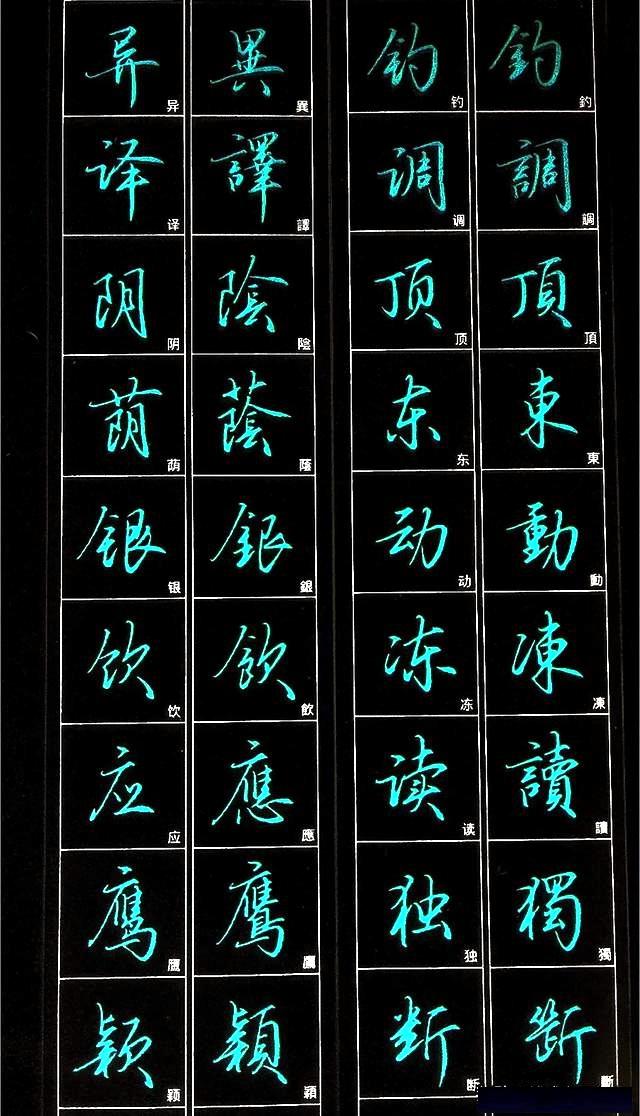 异 异 異 異 钓 钓 釣 釣
译 译 譯 譯 调 调 調 調
阴 阴 陰 陰 顶 顶 頂 頂
荫 荫 蔭 蔭 东 东 東 東
银 银 銀 銀 动 动 動 動
饮 饮 飲 飲 冻 冻 凍 凍
应 应 應 應 读 读 讀 讀
鹰 鹰 鷹 鷹 独 独 獨 獨
颖 颖 穎 穎 断 断 斷 斷